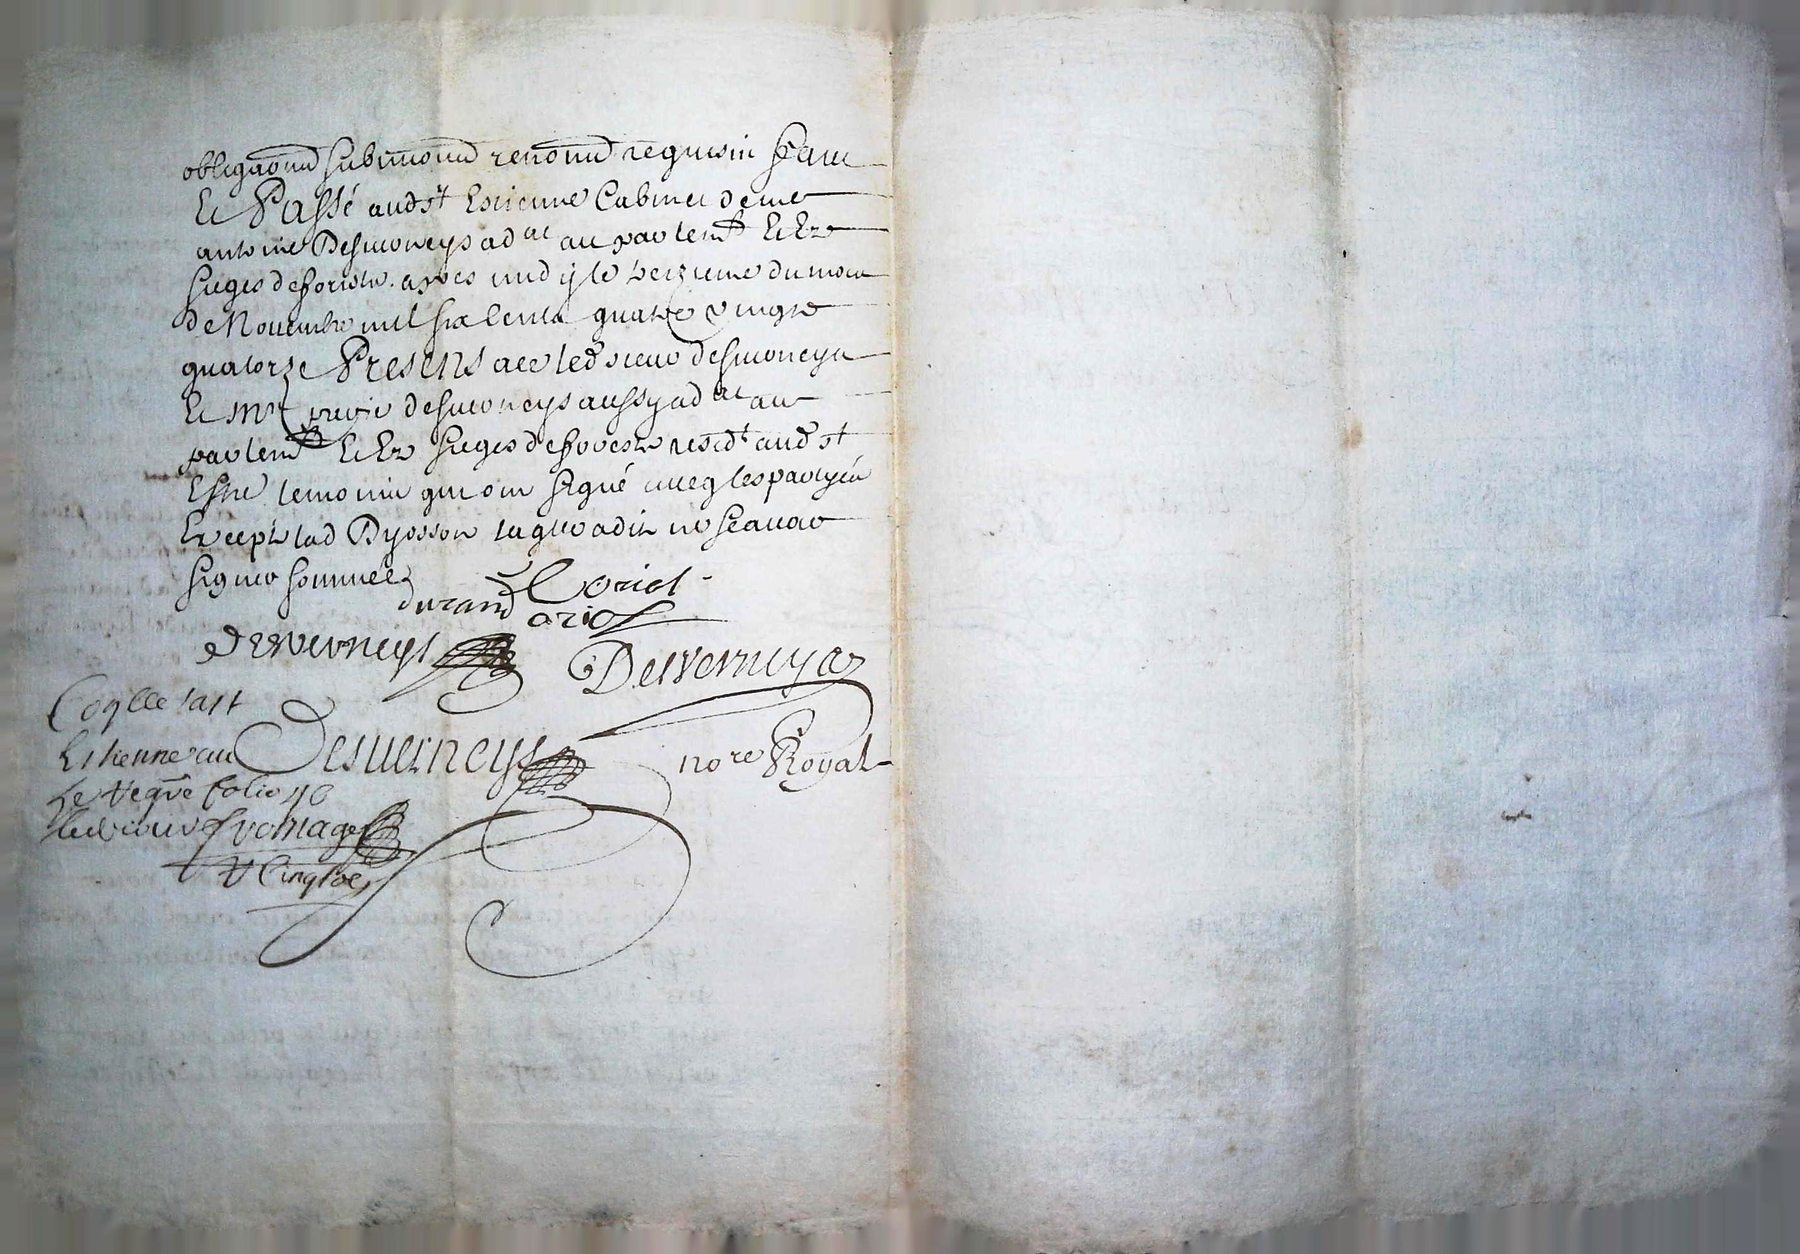 obligaõns submõns renõns requisin Faict
Et Passé aud st Estienne Cabinet de me
antoine Desverneys ad at au parlemt Et Ez
sieges de forestz apres midy le seizieme du mois
de Novembre mil six Cents quatre vingts
quatorze Presens a ce led sieur desverneys
Et Mre desverneys aussy ad at au
parlemt Et Ez sieges de forestz residt aud st
Estne temoins qui ont signé avecq les partyes
Excepté lad Dyosson laque a dit ne scavoir
signer sommée
durand Coriol
oriol
desverneys Desverneys
Conlle a st
Estienne au Desverneys nore Royal
folio 46
fromage
R Cinq sols